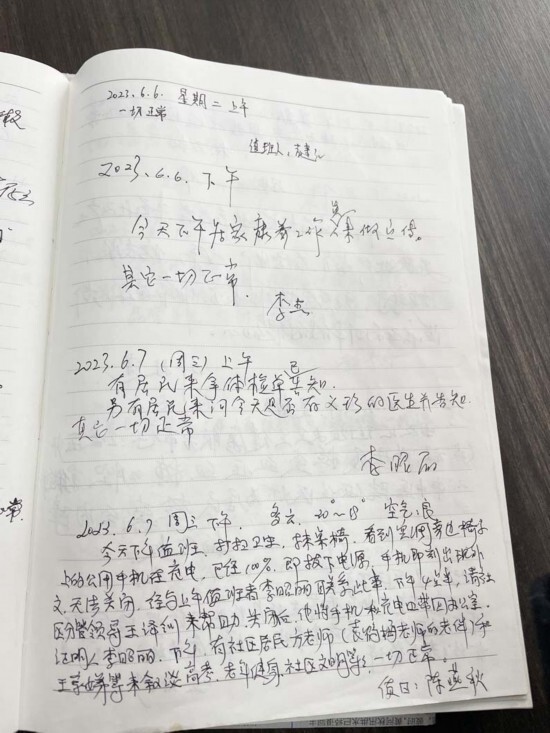 2023.6.6. 星期二 上午
一切正常
值班人:
2023.6.6. 下午
今天下午居家康养工作 来做宣传。
其它一切正常.
李
2023.6.7 (周三) 上午
有居民来拿体检单已告知.
另有居民来问今天是否有义诊的医生并告知
其它一切正常
李昭丽
2023.6.7 周三 下午. 多云. 空气:良
今天下午值班, 打扫卫生, 抹桌椅. 看到里间靠边椅子
上的公用手机在充电, 已经100%, 即拔下电源, 手机即刻出现外
文, 无法关闭. 经与上午值班者李昭丽联系此事. 下午4点半, 请社
区分管领导王 来帮助关闭后, 他将手机和充电器带回办公室.
证明人李昭丽. 下午, 有社区居民方老师 (袁 老师的老伴) 和
王 等来叙谈高考, 老年健身, 社区文明等, 一切正常.
值日: 陈燕秋